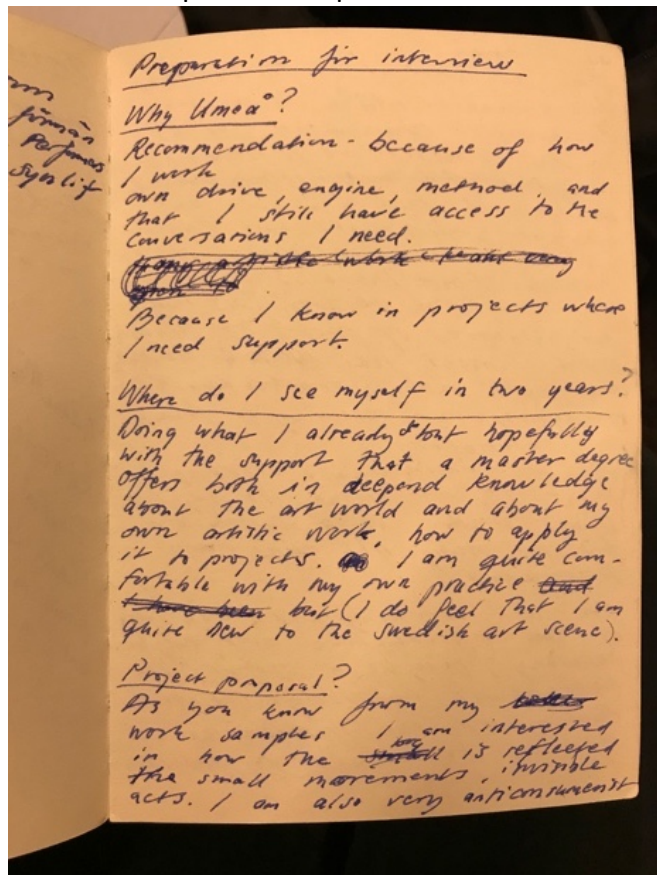 Preparation for interview
Why Umeå?
Recommendation - because of how
I work
own drive, engine, method, and
that I still have access to the
conversations I need.
Because I know in projects where
I need support.
Where do I see myself in two years?
Doing what I already do but hopefully
with the support that a master degree
offers both in deepend knowledge
about the art world and about my
own artistic work, how to apply
it to projects. I am quite com-
fortable with my own practice and
I have been but (I do feel that I am
quite new to the Swedish art scene).
Project proposal?
As you know from my
work samples I am interested
in how the big is reflected
the small movements, invisible
acts. I am also very anticonsumerist